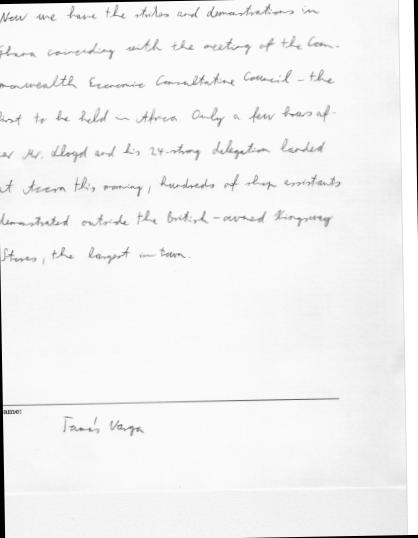 Now we have the strikes and demonstrations in
Ghana coinciding with the meeting of the Com-
monwealth Economic Consultative Council - the
first to be held in Africa. Only a few hours af-
ter Mr. Lloyd and his 24-strong delegation landed
at Accra this morning, hundreds of shop assistants
demonstrated outside the British-owned Kingsway
Stores, the largest in town.
ame:
Tamás Varga